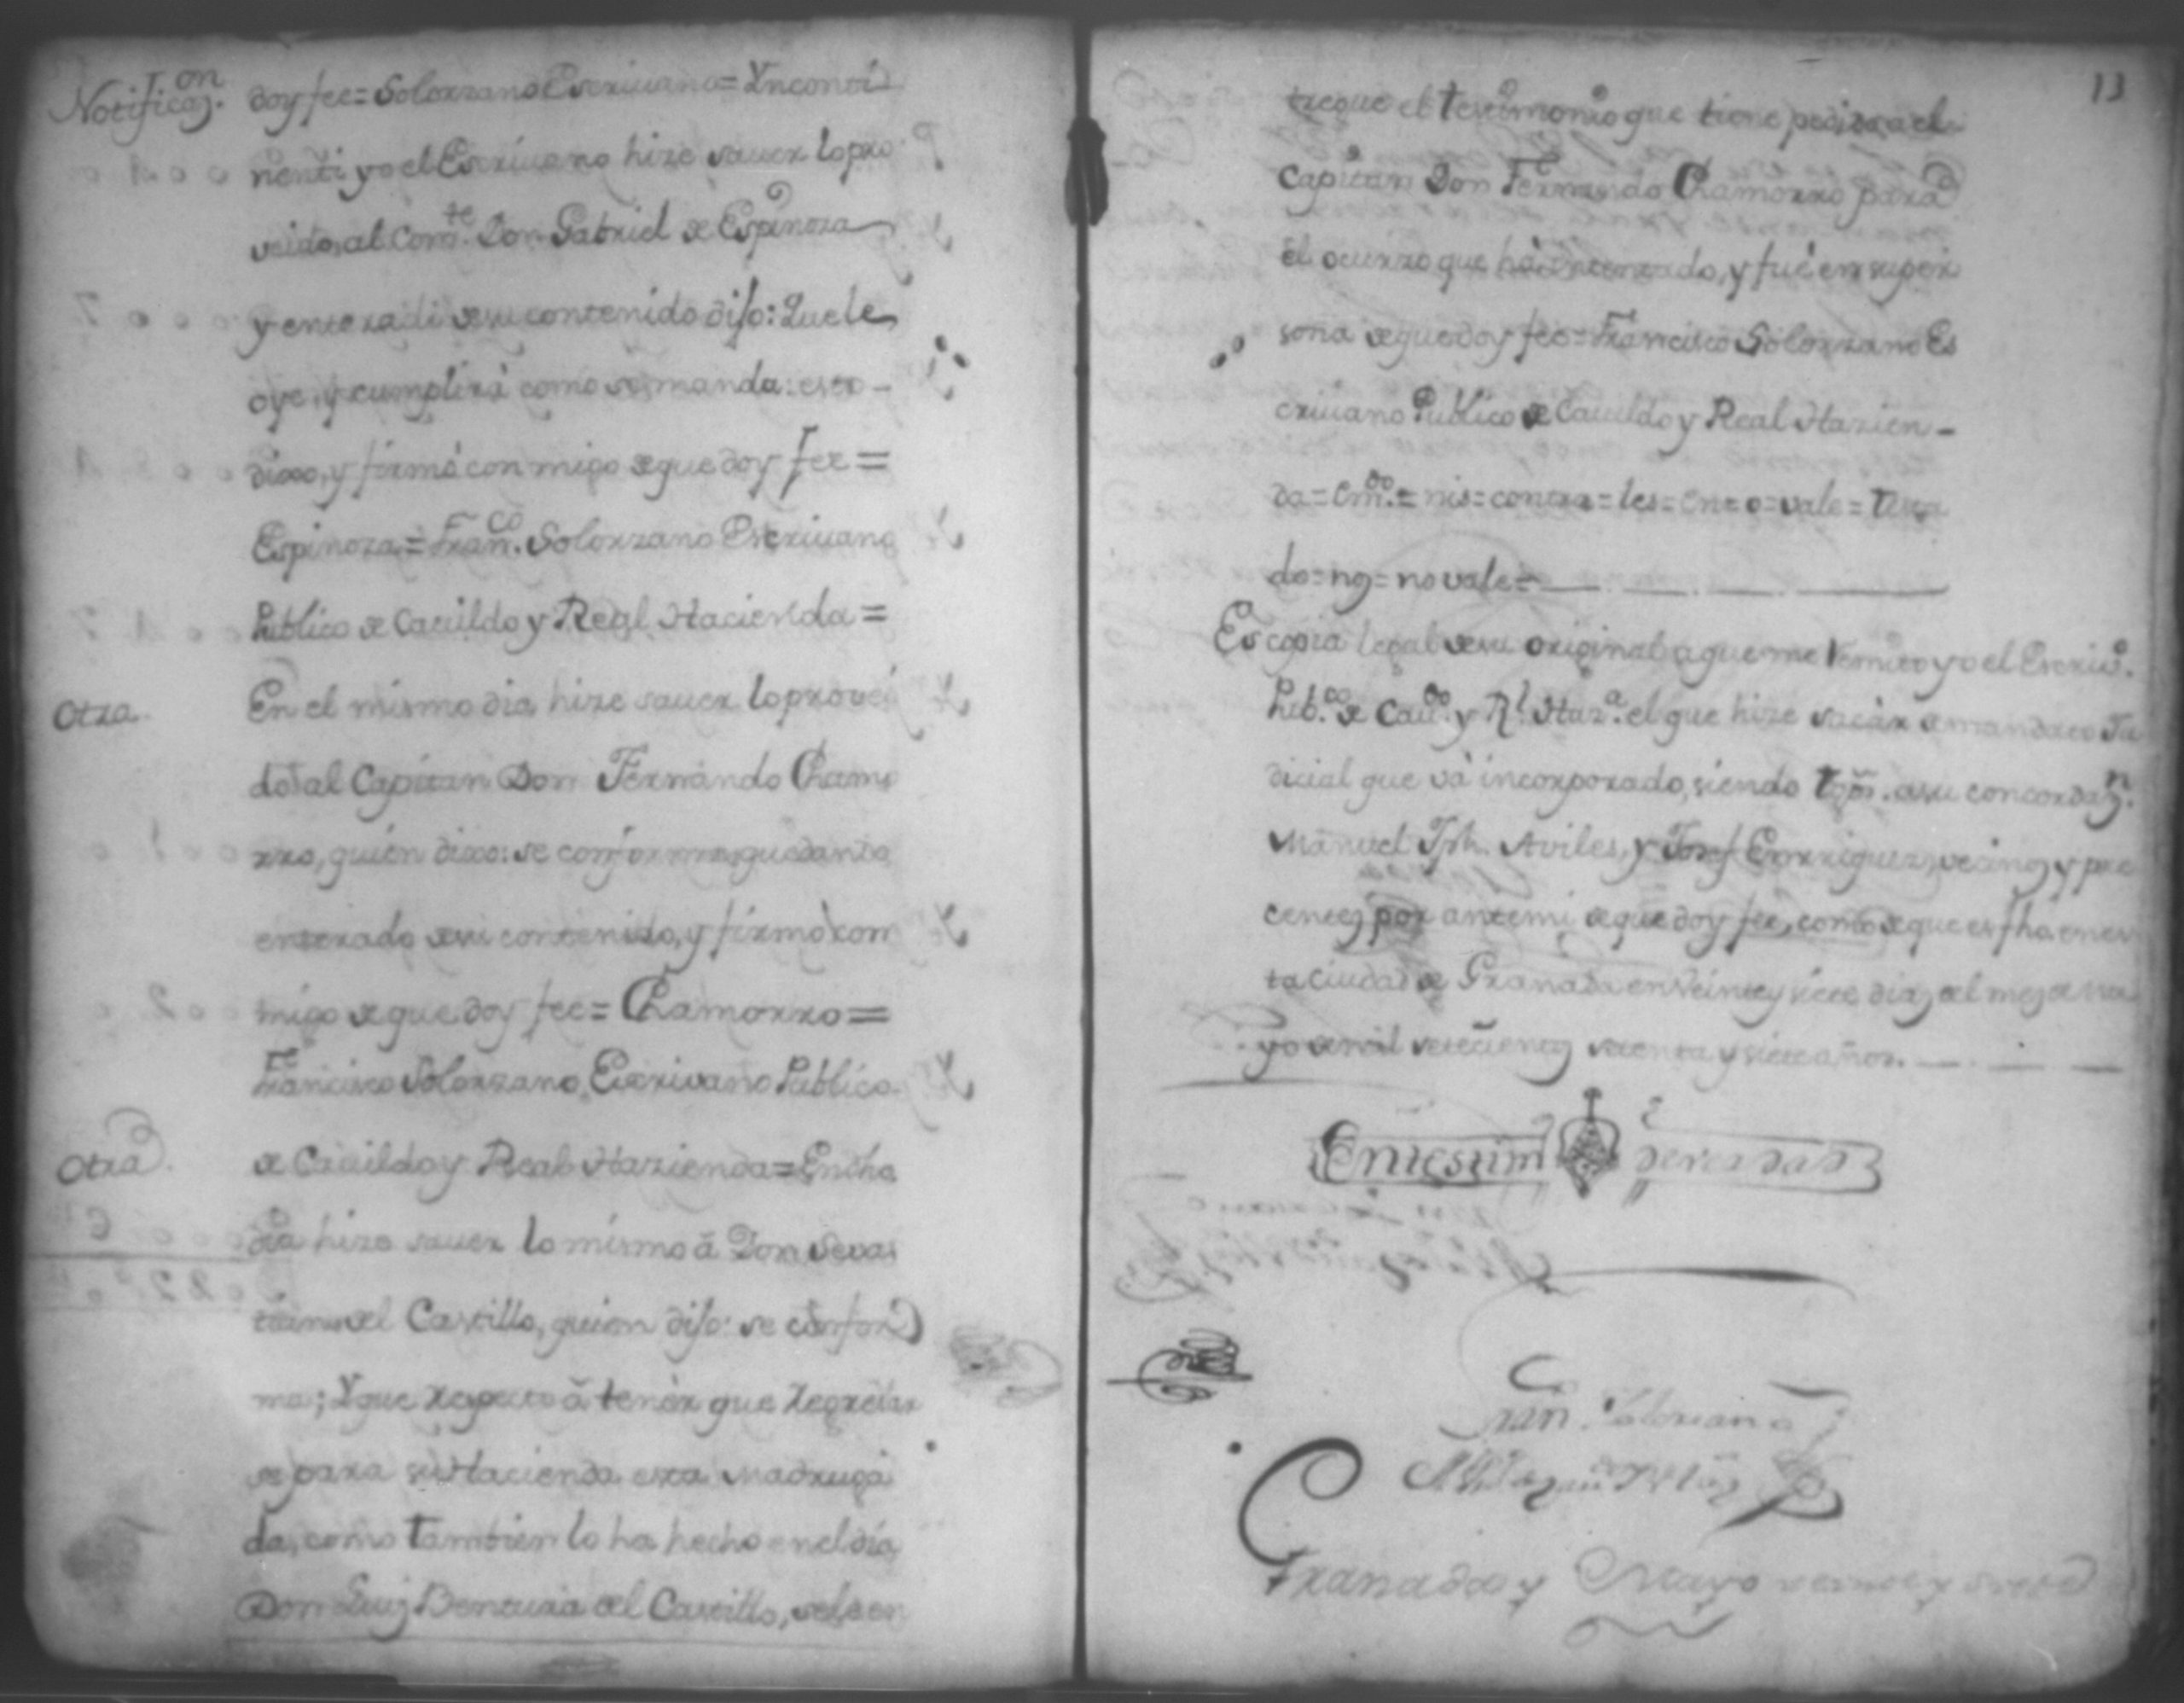 Notificaz.on doy fee = Solorzano Escriuano = Yncontí
nenti yo el Escriuano hize sauer lo pro
veido, al Com.te Don Gabriel de Espinoza
y enterado de su contenido dijo: Que le
oye, y cumplirá como se manda: esto-
dixo, y firmó con migo de que doy fee =
Espinoza = Fran.co Solorzano Escriuano
Publico de Cauildo y Real Hacienda =
Otra En el mismo dia hize sauer lo provei
do al Capitan Don Fernándo Chamo
rro, quién dixo: se conforma quedando
enterado de su contenido, y firmó con
migo de que doy fee = Chamorro =
Francisco Solorzano, Escrivano Publico
Otra de Cauildo y Real Hazienda = En dho
dia hize sauer lo mismo á Don Sevas
tian del Castillo, quien dijo: se confor
ma; Y que respecto á tenér que regresar
se para su Hacienda esta Madruga
da, como tambien lo ha hecho en el dia
Don Luis Bentura del Castillo, se le en
13
tregue el testimonio que tiene pedido el
Capitan Don Fernando Chamorro para
el ocurro que há intentado, y fué en su per
sona de que doy fee = Francisco Solorzano Es
criuano Publico de Cauildo y Real Hazien-
da = Em.do = nis = contra = les = Ent = o = vale = Testa
do = ng = no vale =
Es copia legal de su original a que me remito yo el Escriu.o
Pub.co de Cau.do y Rl. Haz.a el que hize sacár de mandato Ju
dicial que vá incorporado, siendo t͠gos. a su concordaz.n
Manuel Jph. Aviles, y Josef Enrriquez, vecinos y pre
centes por antemi de que doy fee, como de que es fho. en es
ta ciudad de Granada en Veinte y siete dias del mes de Ma
yo de mil setecientos setenta y siete años.
En testim.o de verdad
Fran. Solorzano
Granada y Mayo veinte y siete d